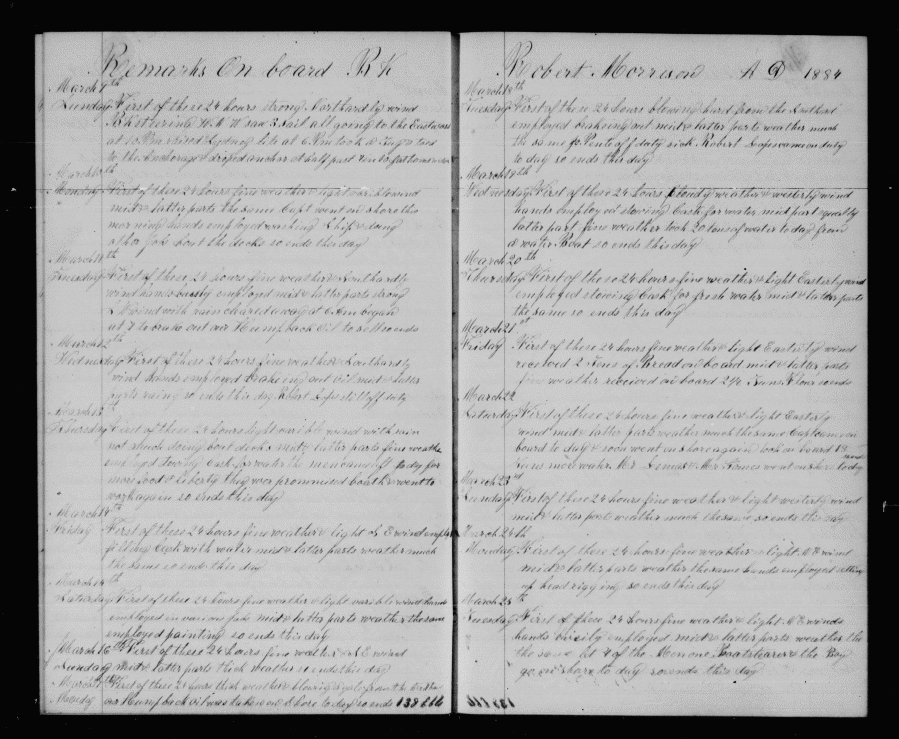 Remarks On board Bk
March 9th
Sunday First of these 24 hours strong Northardly wind
Bk stering saw 3 Sail all going to the Eastward
at raised Sydney lite at 6 Am took a
to the Anchorage droped anchor at half past
March 10th
Monday First of these 24 hours fine weather & light wind
mid & latter parts the same Capt went on shore this
morning hands employed washing Ship & doing
jobs bout the decks so ends this day
March 11th
Tuesday First of these 24 hours fine weather & Southardly
wind hands buesly employed mid & latter parts strong
wind with rain cleared away at 6 Am began
at 7 to brake out our Humpback Oil to sell so ends
March 12th
Wednesday First of these 24 hours fine weather & Southardly
wind hands employed Brakeing out Oil mid & latter
parts rainy so ends this day Robert still off duty
March 13th
Thursday First of these 24 hours light varible wind with rain
not much doing bout decks mid & latter parts fine weather
employed stowing Cask for water the men to day for
more food & liberty they was prommised boath & went to
work again so ends this day
March 14th
Friday First of these 24 hours fine weather & light S E wind employ
filling Cask with water mid & latter parts weather much
the same so ends this day
March
Saturday First of these 24 hours fine weather & light varible wind hands
employed in various jobs mid & latter parts weather the same
employed painting so ends this day
March 16th First of these 24 hours fine weather & E wind
Sunday mid & latter parts thick weather so ends this day
March 17th First of these 24 hours thick weather & blowing a gale from the
Monday our Humpback oil was taken on Shore to day so ends 138
Robert Morrison A D 1884
March 18th
Tuesday First of these 24 hours blowing hard from the Southard
employed brakeing out mid & latter parts weather much
the same off duty sick Robert came on duty
to day so ends this day
March 19th
Wednesday First of these 24 hours Cloudy weather & westerly wind
hands employed stowing Cask for water mid part squally
latter part fine weather took 20 tons of water to day from
a water Boat so ends this day
March 20th
Thursday First of these 24 hours fine weather & light Easterly wind
employed stowing Cask for fresh water mid & latter parts
the same so ends this day
March 21st
Friday First of these 24 hours fine weather & light Easterly wind
received 2 Tons of Bread on board mid & latter parts
fine weather received on board 2 1/4 Tons Flour so ends
March 22
Saturday First of these 24 hours fine weather & light Easterly
wind mid & latter parts weather much the same Capt came on
board to day & soon went on shore again took on board 18
tuns more water Mr & Mr went on shore to day
March 23rd
Sunday First of these 24 hours fine weather & light westerly wind
mid & latter parts weather much the same so ends this day
March 24th
Monday First of these 24 hours fine weather & light N E wind
mid & latter parts weather the same hands employed
up head rigging so ends this day
March 25th
Tuesday First of these 24 hours fine weather & light N E winds
hands buisily employed mid & latter parts weather the
the same let 4 of the Men one Boatstearer & the Boy
go on shore to day so ends this day